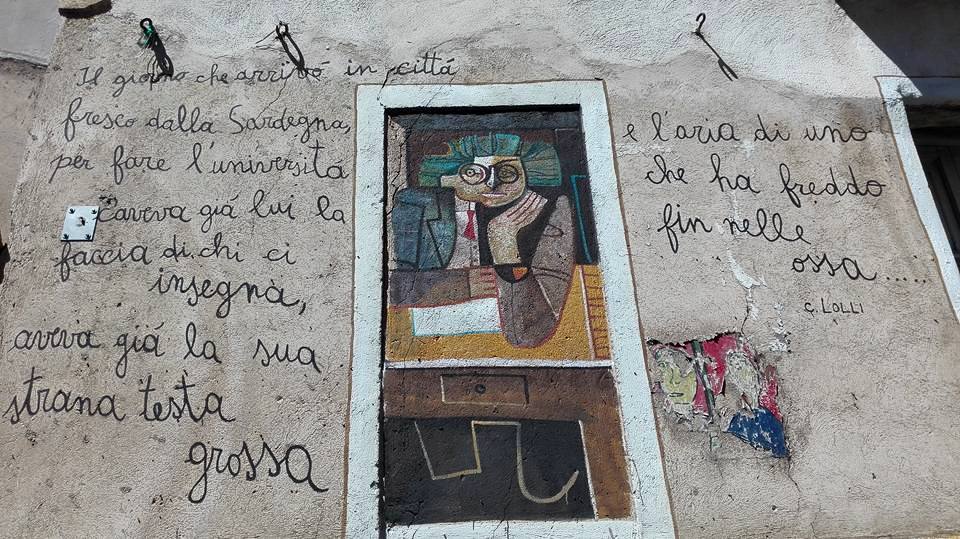 Il giorno che arrivó in cittá
fresco dalla Sardegna,
per fare l'universitá
c'aveva giá lui la
faccia di chi ci
insegna,
aveva giá la sua
strana testa
grossa
e l'aria di uno
che ha freddo
fin nelle
ossa.....
C. LOLLI